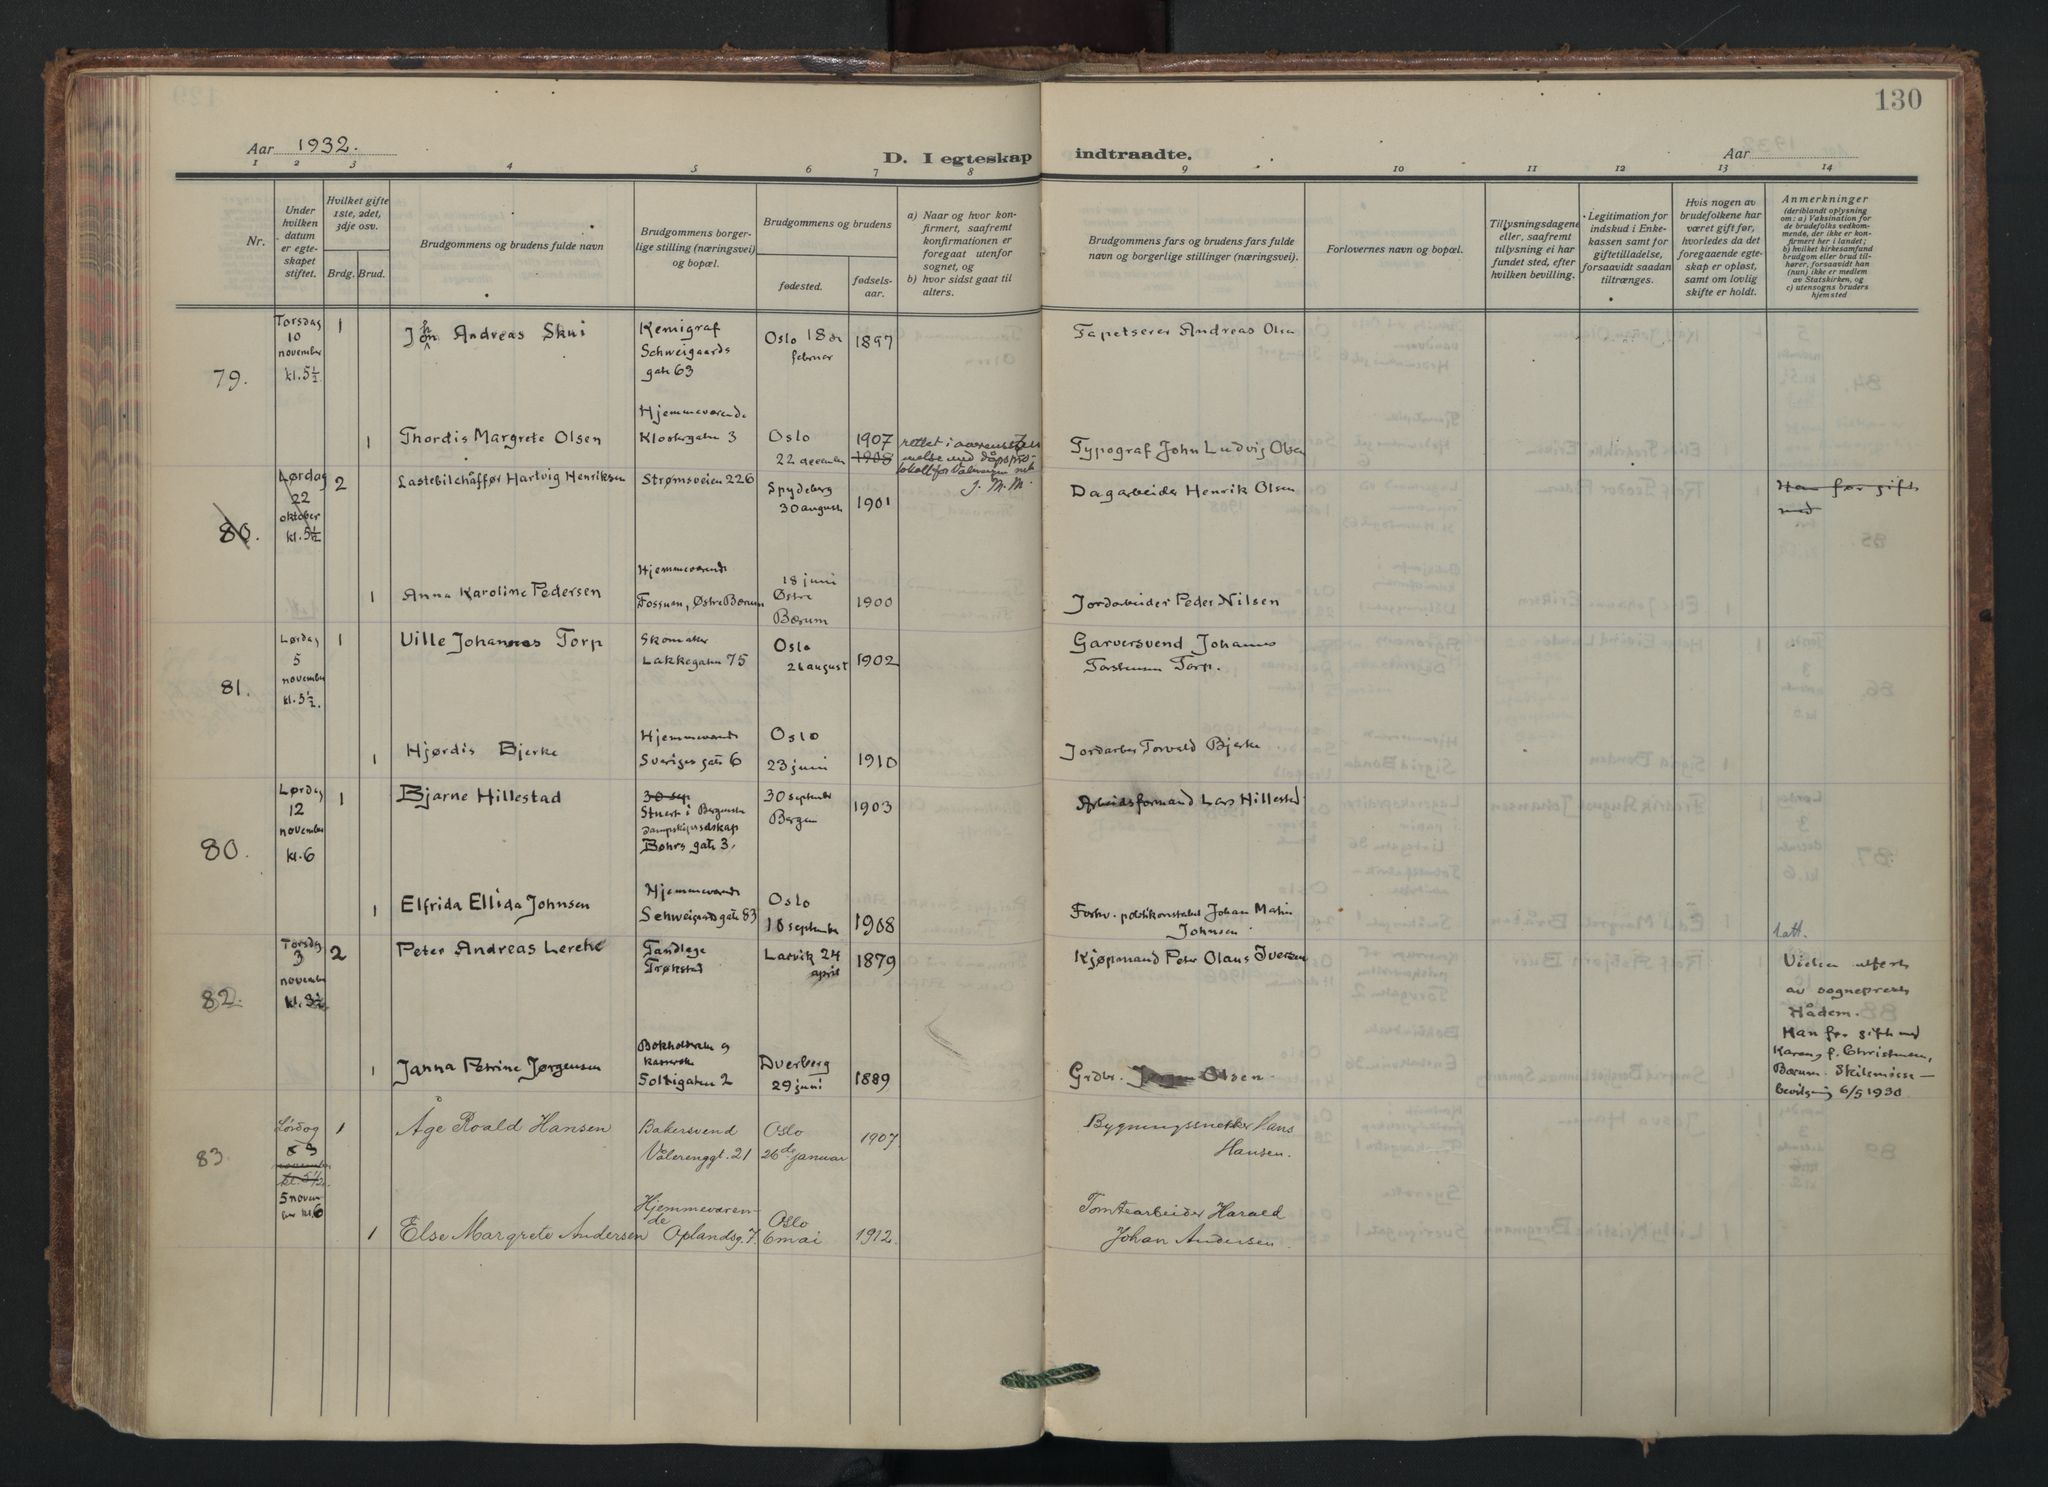 130
Aar 1932.
D. I egteskap indtraadte.
Aar
1 2 3 4 5 6 7 8 9 10 11 12 13 14
Nr.
Under hvilken datum er egteskapet stiftet.
Hvilket gifte 1ste, 2det, 3dje osv.
Brdg. Brud.
Brudgommens og brudens fulde navn
Brudgommens borgerlige stilling (næringsvei) og bopæl.
Brudgommens og brudens
fødested.
fødselsaar.
a) Naar og hvor konfirmert, saafremt konfirmationen er foregaat utenfor sognet, og
b) hvor sidst gaat til alters.
Brudgommens fars og brudens fars fulde navn og borgerlige stillinger (næringsvei).
Forlovernes navn og bopæl.
Tillysningsdagene eller, saafremt tillysning ei har fundet sted, efter hvilken bevilling.
Legitimation for indskud i Enkekassen samt for giftetilladelse, forsaavidt saadan tiltrænges.
Hvis nogen av brudefolkene har været gift før, hvorledes da det foregaaende egteskap er opløst, samt om lovlig skifte er holdt.
Anmerkninger
(deriblandt oplysning om: a) Vaksination for de brudefolks vedkommende, der ikke er konfirmert her i landet; b) hvilket kirkesamfund brudgom eller brud tilhører, forsaavidt han (hun) ikke er medlem av Statskirken, og c) utensogns bruders hjemsted
79.
Torsdag
10
november
kl. 5½
1
Andreas Skui
Kemigraf
Schweigaards
gate 63
Oslo 18 de
februar
1897
Tapetserer Andreas Olsen
1
Thordis Margrete Olsen
Hjemmeværende
Klostergaten 3
Oslo
22 december
1907
1908
Typograf John Ludvig Olsen
80.
Lørdag
22
oktober
kl. 5½
2
Lastebilchåffør Hartvig Henriksen
Strømsveien 226
Spydeberg
30 august
1901
Dagarbeider Henrik Olsen
Han før gift
med
1
Anna Karoline Pedersen
Hjemmeværende
Fossuen, Østre Bærum
18 juni
Østre
Bærum
1900
Jordarbeider Peder Nilsen
81.
Lørdag
5
november
kl. 5½.
1
Ville Johannes Torp
Skomaker
Lakkegaten 75
Oslo
26 august
1902
Garversvend Johannes
Torstensen Torp.
1
Hjørdis Bjerke
Hjemmeværende
Sveriges gate 6
Oslo
23 juni
1910
Jordarber Torvald Bjerke
80.
Lørdag
12
november
kl. 6
1
Bjarne Hillestad
30 sep
Stuert i Bergenske
Dampskipsselskap
Bøhrs gate 3.
30 september
Bergen
1903
Arbeidsformand Lars Hillestad
1
Elfrida Ellida Johnsen
Hjemmeværende
Schweigaardgate 83
Oslo
10 september
1908
Forhv. politikonstabel Johan Martin
Johnsen
82.
Torsdag
3
november
kl. 3½
2
Peter Andreas Lerche
Tandlæge
Trøkstad
Larvik 24
april
1879
Kjøpmand Peter Olaus Iversen
Att.
Vielsen utført
av sogneprest
Hådem.
Han før gift med
Karen f. Christensen,
Bærum. Skilsmisse-
bevilgning 6/5 1930
1
Janna Petrine Jørgensen
Bokholderske og
kasserske
Solligaten 2
Dverberg
29 juni
1889
Grdbr. Olsen
83.
Lørdag
november
kl. 5½
5 novem-
ber kl. 6
1
Åge Roald Hansen
Bakersvend
Vålerenggt. 21
Oslo
26de januar
1907
Bygningssnekker Hans
Hansen.
1
Else Margrete Andersen
Hjemmeværen-
de
Oplandsg. 7.
Oslo
6 mai
1912.
Tomtearbeider Harald
Johan Andersen.